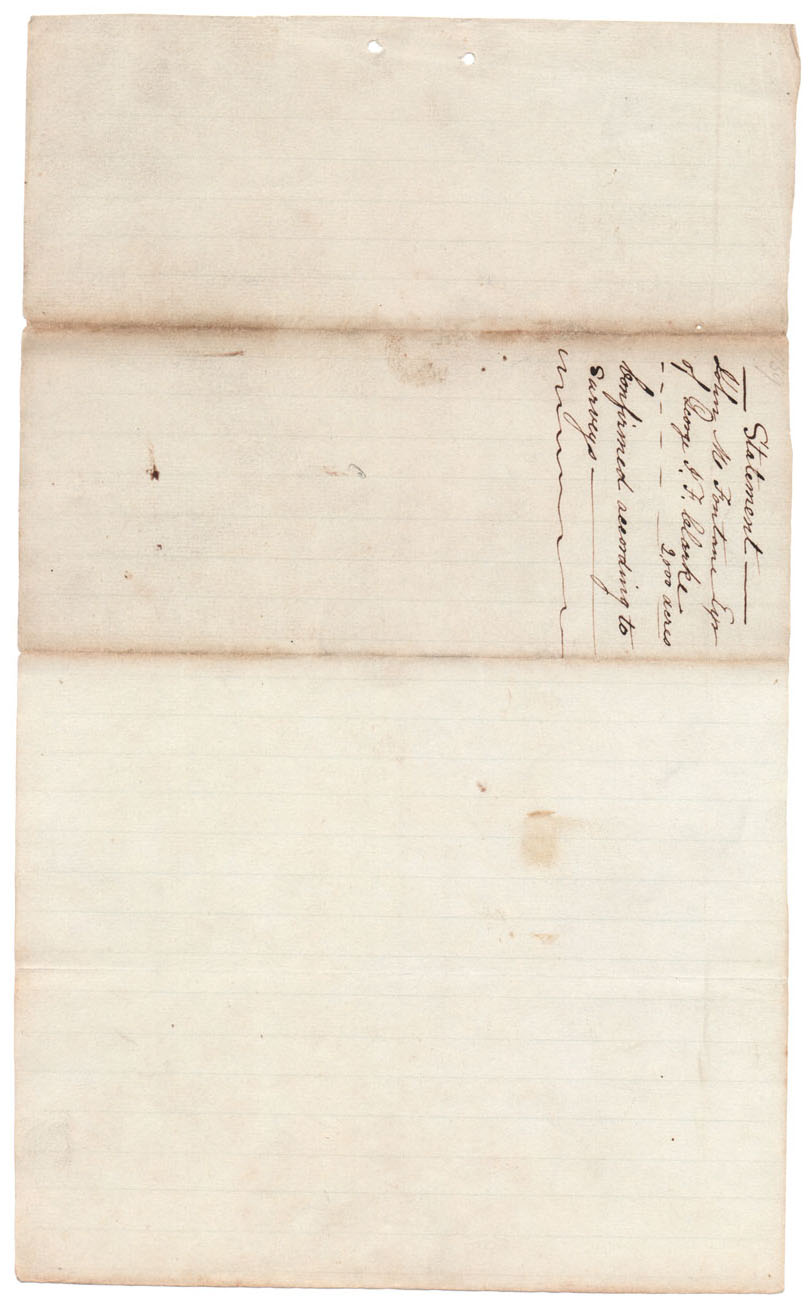 — Statement —
John M. Fontane Exr
of George J. F. Clarke
2,000 acres
Confirmed according to
surveys —